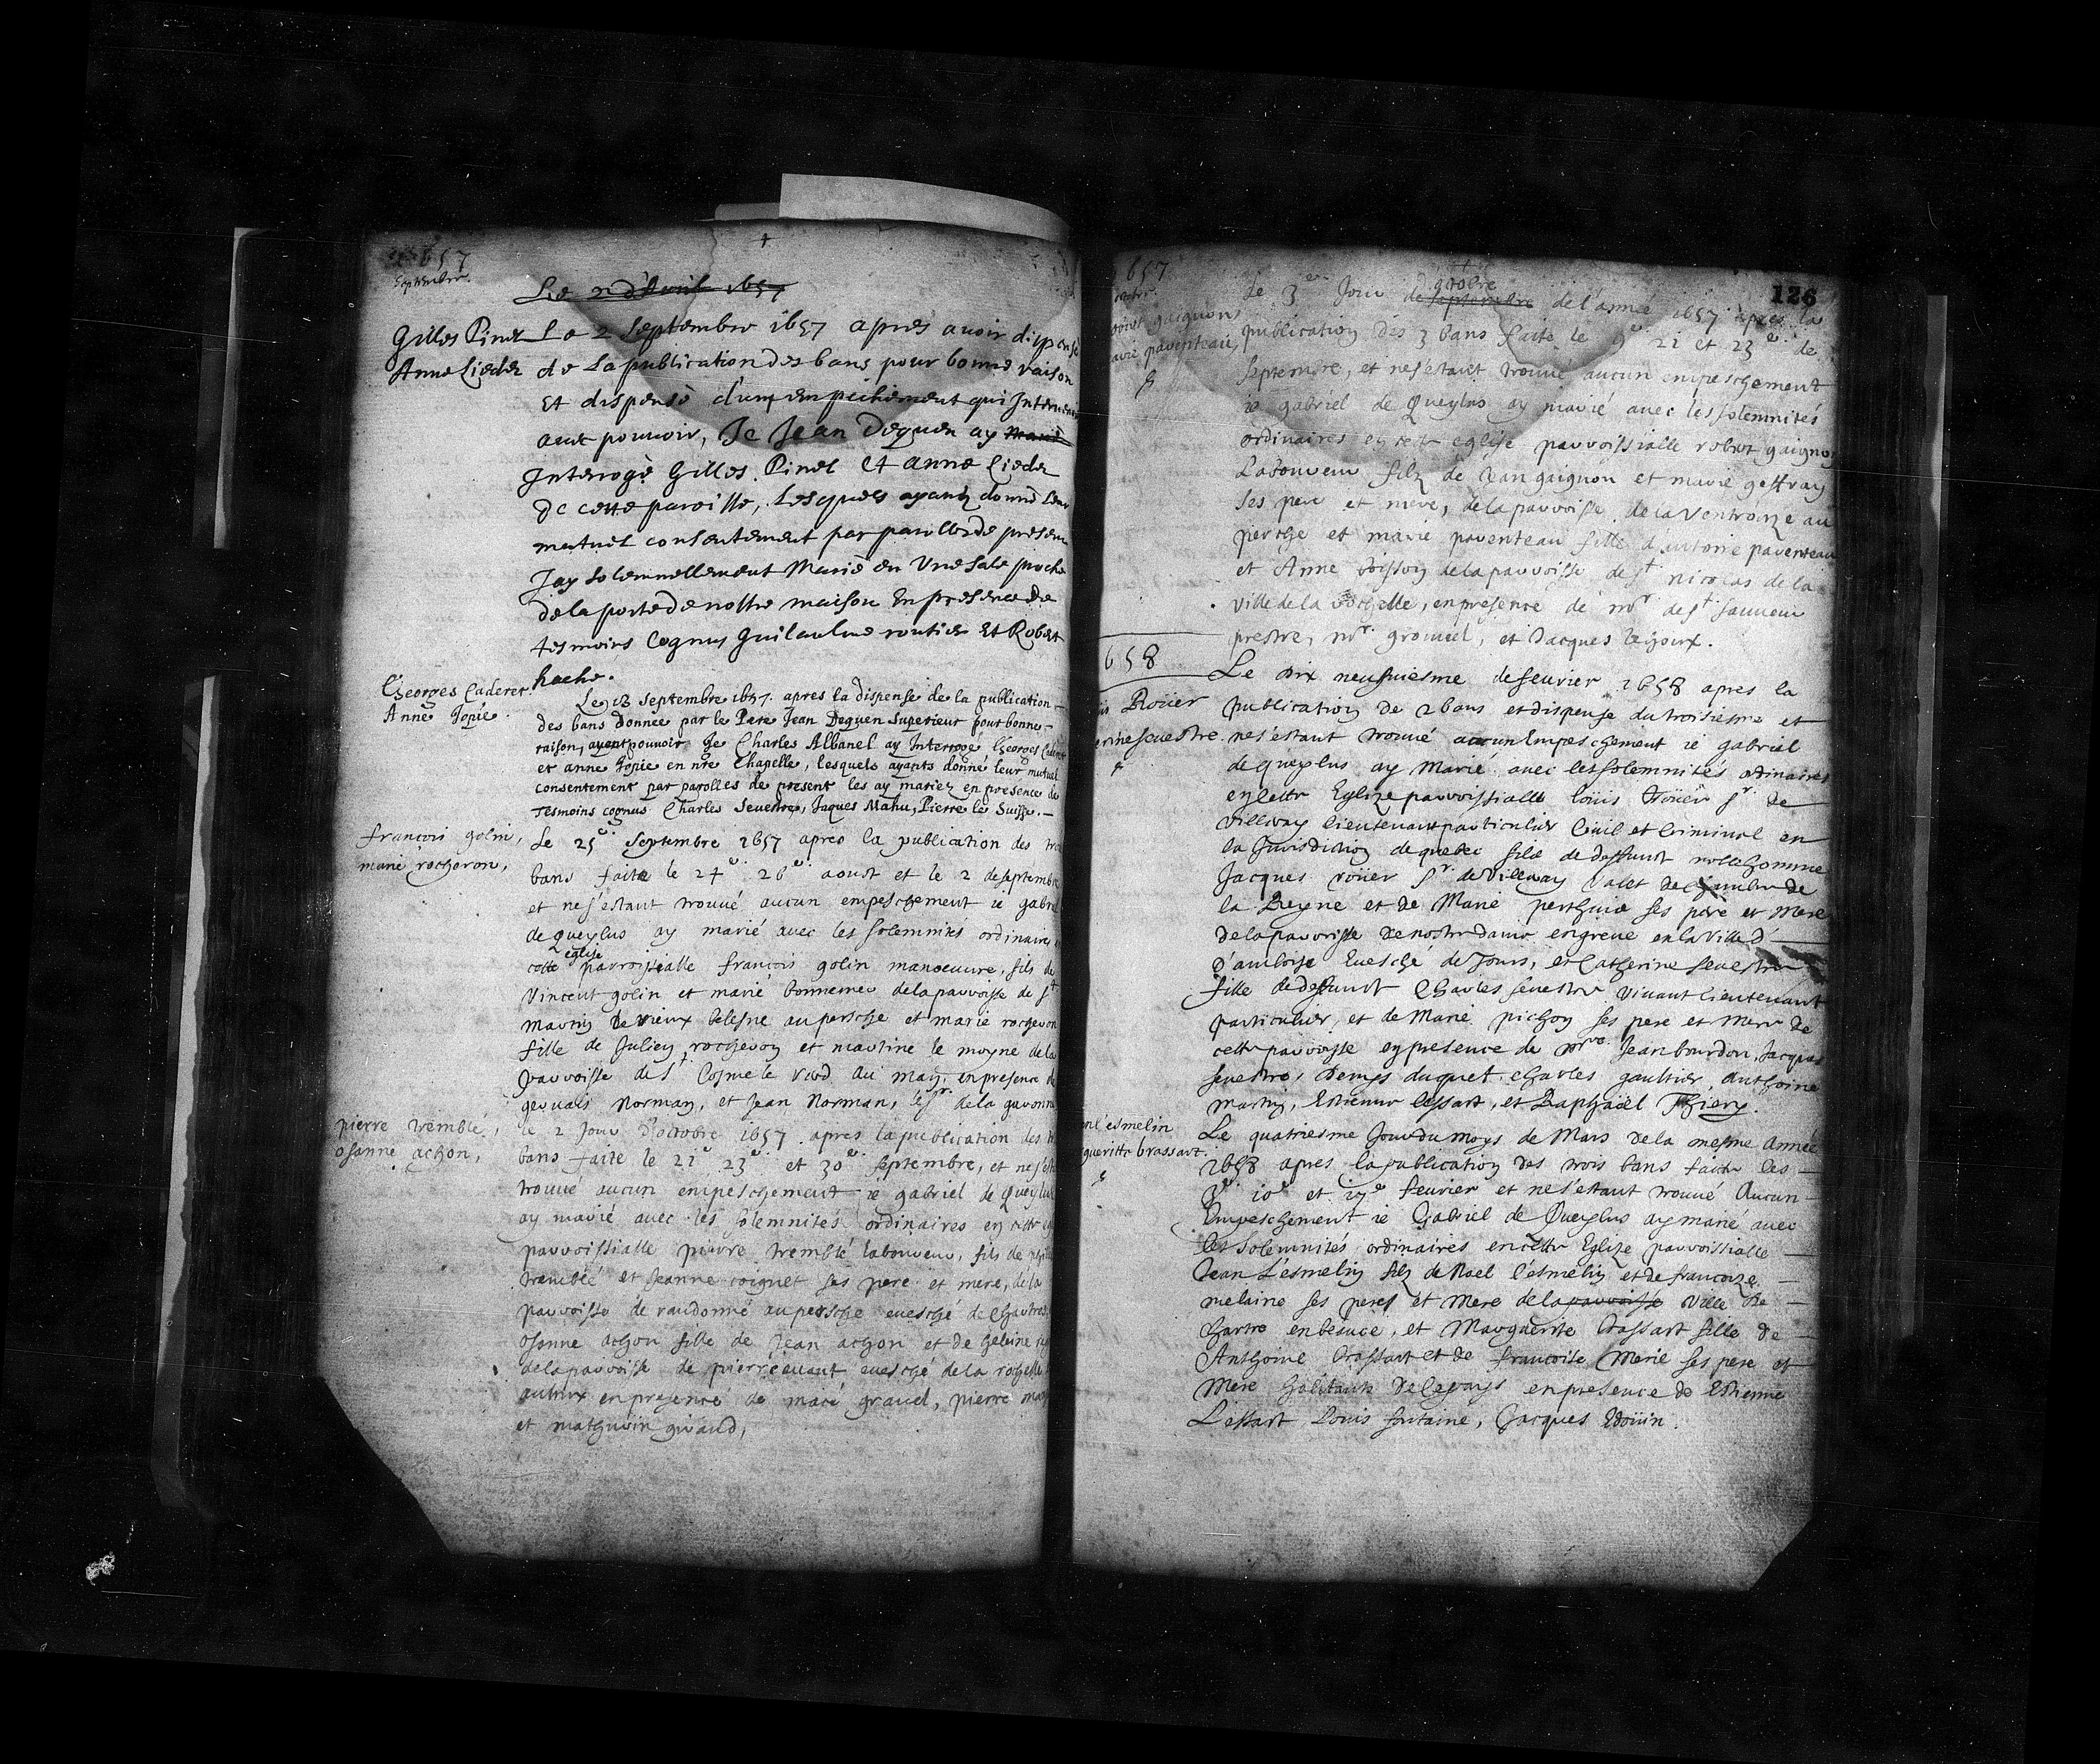 1657
Septembre.
Le 2 d'Avril 1657
Gilles Pinel
Anne Lieder
Le 2 Septembre 1657 apres avoir dispensé
de la publication des bans pour bonne raison
et dispensé d'un empeschement qui
avec pouvoir, Je Jean Dequen ay Marié
Interrogé Gilles Pinel et anne Lieder
de cette paroisse, Lesquels ayants donné leur
mutuel consentement par parolles de present
Jay solemnellement Marié en Une sale proche
de la porte de nostre maison En presence de
tesmoins Cognus Guilaulme routier Et Robert
hache.
Georges Caderer.
Anne Jopie.
Le 18 Septembre 1657. apres la dispense de la publication
des bans donnee par le Pere Jean Dequen Superieur pour bonne
raison, ayant pouvoir Je Charles Albanel ay Interrogé Georges
et anne Jopie en nre Chapelle, lesquels ayants donné leur mutuel
consentement par parolles de present les ay mariez en presence de
Tesmoins cognus Charles Sevestre, Jaques Mahu, Pierre le Suisse.
françois golin,
marie rocheron,
Le 25e Septembre 1657 apres la publication des
bans faite le 24e 26e aoust et le 2 de septembre
et ne s'estant trouvé aucun empeschement ie gabriel
de Queylus ay marié avec les solemnités ordinaires
eglise
cette parroissialle françois golin manoeuvre, fils de
Vincent golin et marie bonnemer de la parroisse de st
martin de vieux belesne au persche et marie rocheron
fille de Julien rocheron et martine le moyne de la
parroisse de st Cosme le Verd au may, en presence de
gervais Norman, et Jean Norman, de la garenne
pierre tremblé,
osanne achon,
le 2 Jour d'octobre 1657. apres la publication des
bans faite le 21e 23e et 30e septembre, et ne s'est
trouvé aucun empeschement ie gabriel de Queylus
ay marié avec les solemnités ordinaires en cette
parroissialle pierre tremblé laboureur, fils de
tremblé et Jeanne coignet ses pere et mere, de la
parroisse de randonné au persche evesché de Chartres
Osanne achon fille de Jean achon et de helene
de la parroisse de evesché de la rochelle
en presence de macé gravel, pierre
et mathurin giraud,
1657
126
octobre
Le 3e Jour de septembre de l'année 1657 apres la
gaignon
publication des 3 bans faite le 9e 21 et 23e de
septembre, et ne s'estant trouvé aucun empeschement
ie gabriel de Queylus ay marié avec les solemnités
ordinaires en cette eglise parroissialle robert gaignon
Laboureur filz de Jean gaignon et marie geffray
ses pere et mere, de la parroisse de la Ventrouze au
perche et marie parenteau fille d'antoine parenteau
et Anne poisson de la parroisse de st nicolas de la
ville de la rochelle, en presence de mr de st sauveur
prestre, mr grouvel, et Jacques
1658
Roüer
sevestre.
Le dix neufuiesme de fevrier 1658 apres la
publication de 2 bans et dispense du troisiesme et
ne s'estant trouvé aucun Empeschement ie gabriel
de queylus ay Marié avec les solemnités ordinaires
en cette Eglize parroissialle loüis Roüer sr de
Villeray lieutenant particulier Civil et Criminel en
la Jurisdiction de quebec filz de deffunct noble homme
Jacques roüer sr de Villeray Valet de chambre de
la Reyne et de Marie perthuis ses pere et Mere
de la parroisse de nostre dame en greve en la Ville d'
d'amboise Evesché de Tours, et Catherine Sevestre
fille de deffunct Charles sevestre Vivant lieutenant
particulier, et de Marie pichon ses pere et Mere de
cette parroisse en presence de Jean bourdon, Jacques
sevestre, Denys duquet, charles gaultier, Anthoine
martin, Estienne lessart, et Raphaël Thiery.
l'esmelin
brassart.
Le quatriesme Jour du moys de Mars de la mesme Année
1658 apres la publication des trois bans faite les
3e 10e et 17e fevrier et ne s'estant trouvé Aucun
Empeschement ie Gabriel de Queylus ay marié avec
les Solemnités ordinaires en cette Eglize parroissialle
Jean L'esmelin filz de Noel l'esmelin et de françoize
melaine ses peres et Mere de la parroisse ville de
Chartre en beauce, et Marguerite brassart fille de
Anthoine brassart et de françoise Merie ses pere et
Mere habitants de ce pays en presence de Estienne
Lessart Louis fontaine, Jacques